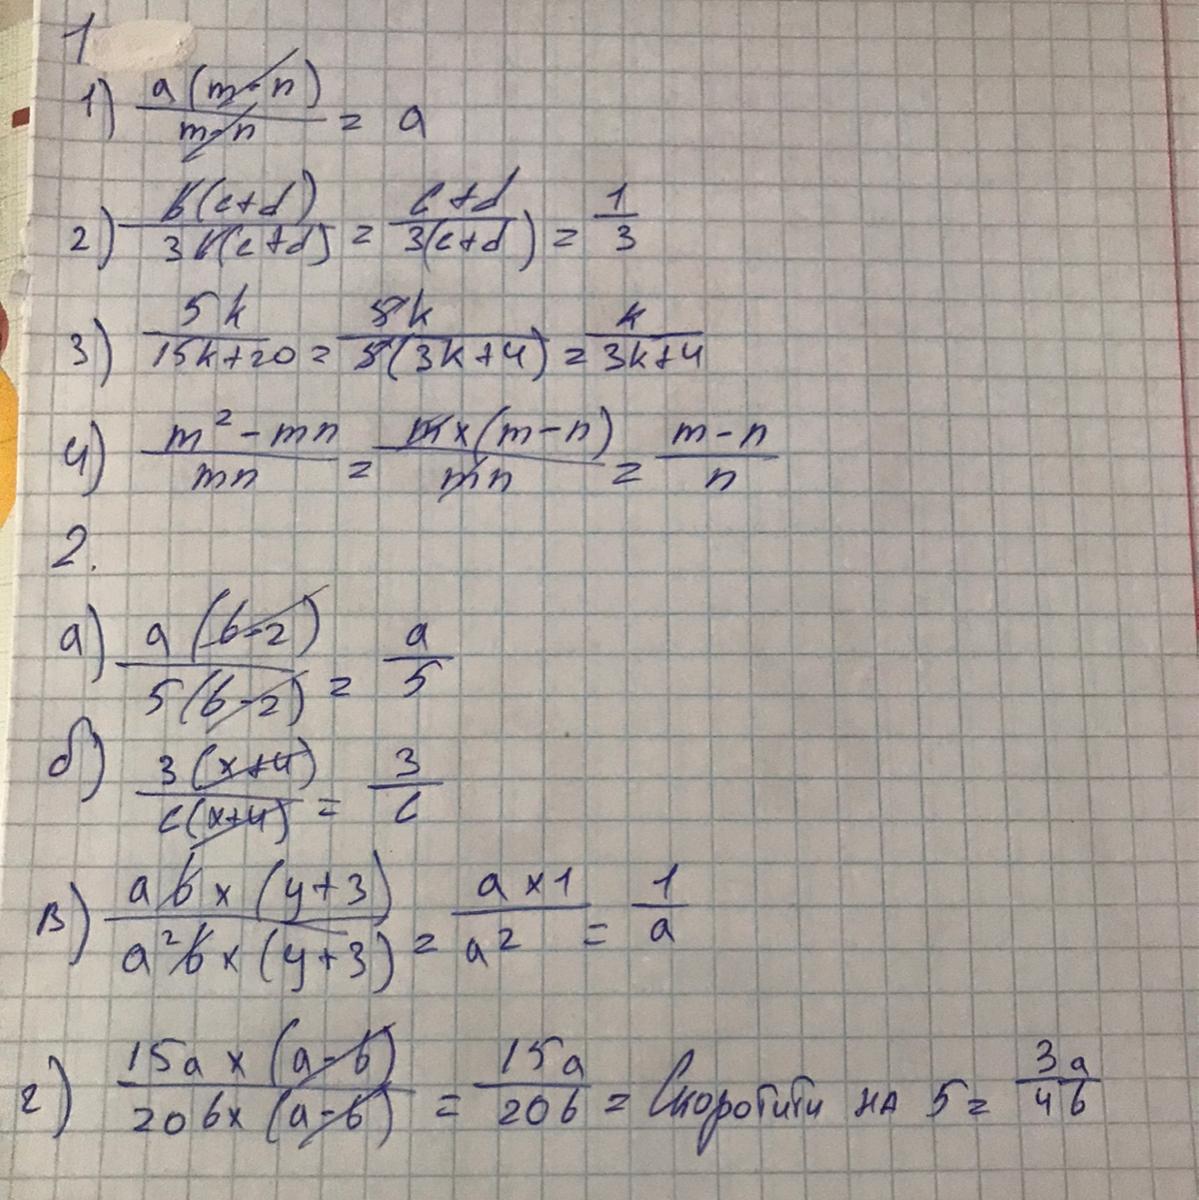 1
1) a(m-n)/m-n = a
2) b(c+d)/3b(c+d) = c+d/3(c+d) = 1/3
3) 5k/15k+20 = 5k/5(3k+4) = k/3k+4
4) m²-mn/mn = m×(m-n)/mn = m-n/n
2.
а) a(b-2)/5(b-2) = a/5
б) 3(x+4)/c(x+4) = 3/c
в) ab×(y+3)/a²b×(y+3) = a×1/a² = 1/a
г) 15a×(a-b)/20b×(a-b) = 15a/20b = Скоротити на 5 = 3a/4b